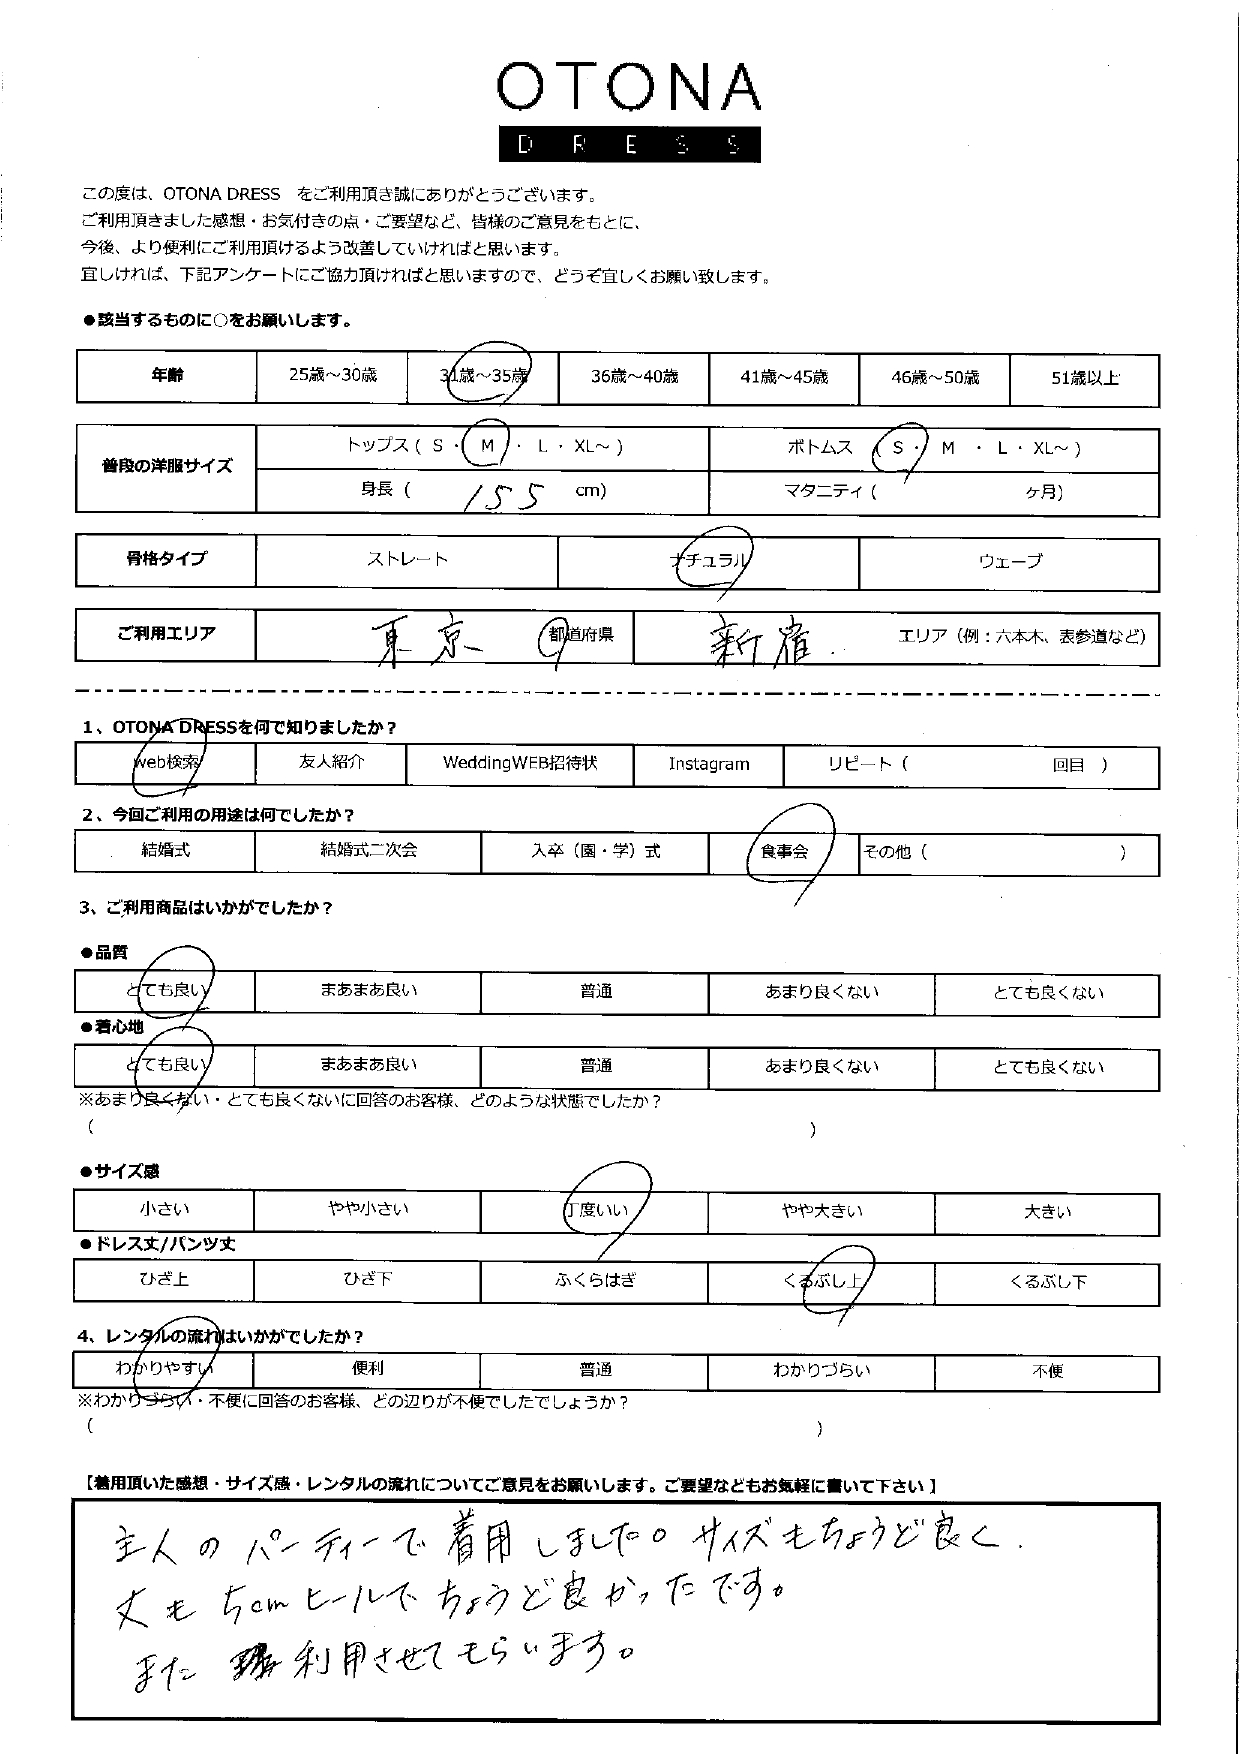 OTONA
DRESS
この度は、OTONA DRESS をご利用頂き誠にありがとうございます。
ご利用頂きました感想・お気付きの点・ご要望など、皆様のご意見をもとに、
今後、より便利にご利用頂けるよう改善していければと思います。
宜しければ、下記アンケートにご協力頂ければと思いますので、どうぞ宜しくお願い致します。
●該当するものに○をお願いします。
年齢 25歳～30歳 31歳～35歳 36歳～40歳 41歳～45歳 46歳～50歳 51歳以上
普段の洋服サイズ トップス ( S ・ M ・ L ・ XL～ ) ボトムス ( S ・ M ・ L ・ XL～ )
身長 ( 155 cm) マタニティ ( ヶ月)
骨格タイプ ストレート ナチュラル ウェーブ
ご利用エリア 東京 都道府県 新宿 エリア（例：六本木、表参道など）
1、OTONA DRESSを何で知りましたか？
web検索 友人紹介 WeddingWEB招待状 Instagram リピート ( 回目 )
2、今回ご利用の用途は何でしたか？
結婚式 結婚式二次会 入卒（園・学）式 食事会 その他 ( )
3、ご利用商品はいかがでしたか？
●品質
とても良い まあまあ良い 普通 あまり良くない とても良くない
●着心地
とても良い まあまあ良い 普通 あまり良くない とても良くない
※あまり良くない・とても良くないに回答のお客様、どのような状態でしたか？
( )
●サイズ感
小さい やや小さい 丁度いい やや大きい 大きい
●ドレス丈/パンツ丈
ひざ上 ひざ下 ふくらはぎ くるぶし上 くるぶし下
4、レンタルの流れはいかがでしたか？
わかりやすい 便利 普通 わかりづらい 不便
※わかりづらい・不便に回答のお客様、どの辺りが不便でしたでしょうか？
( )
【着用頂いた感想・サイズ感・レンタルの流れについてご意見をお願いします。ご要望などもお気軽に書いて下さい】
主人のパーティーで着用しました。サイズもちょうど良く
丈も5cmヒールでちょうど良かったです。
また 利用させてもらいます。